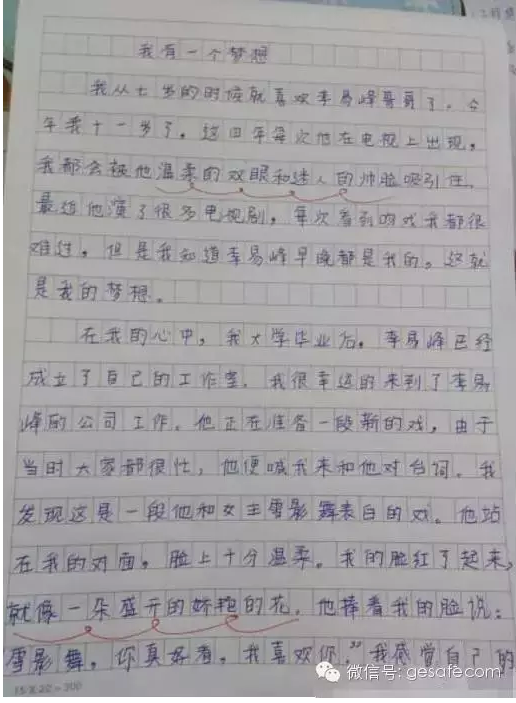 我有一个梦想
我从七岁的时候就喜欢李易峰哥哥了。今
年我十一岁了。这四年每次他在电视上出现,
我都会被他温柔的双眼和迷人的帅脸吸引住。
最近他演了很多电视剧,每次看到吻戏我都很
难过。但是我知道李易峰早晚都是我的。这就
是我的梦想。
在我的心中,我大学毕业后。李易峰已经
成立了自己的工作室。我很幸运的来到了李易
峰的公司工作。他正在准备一段新的戏,由于
当时大家都很忙,他便喊我来和他对台词。我
发现这是一段他和女主雪影舞表白的戏。他站
在我的对面,脸上十分温柔。我的脸红了起来,
就像一朵盛开的娇艳的花。他捧着我的脸说:
“雪影舞,你真好看,我喜欢你。”我感觉自己的
15×20=300
微信号: gesafecom